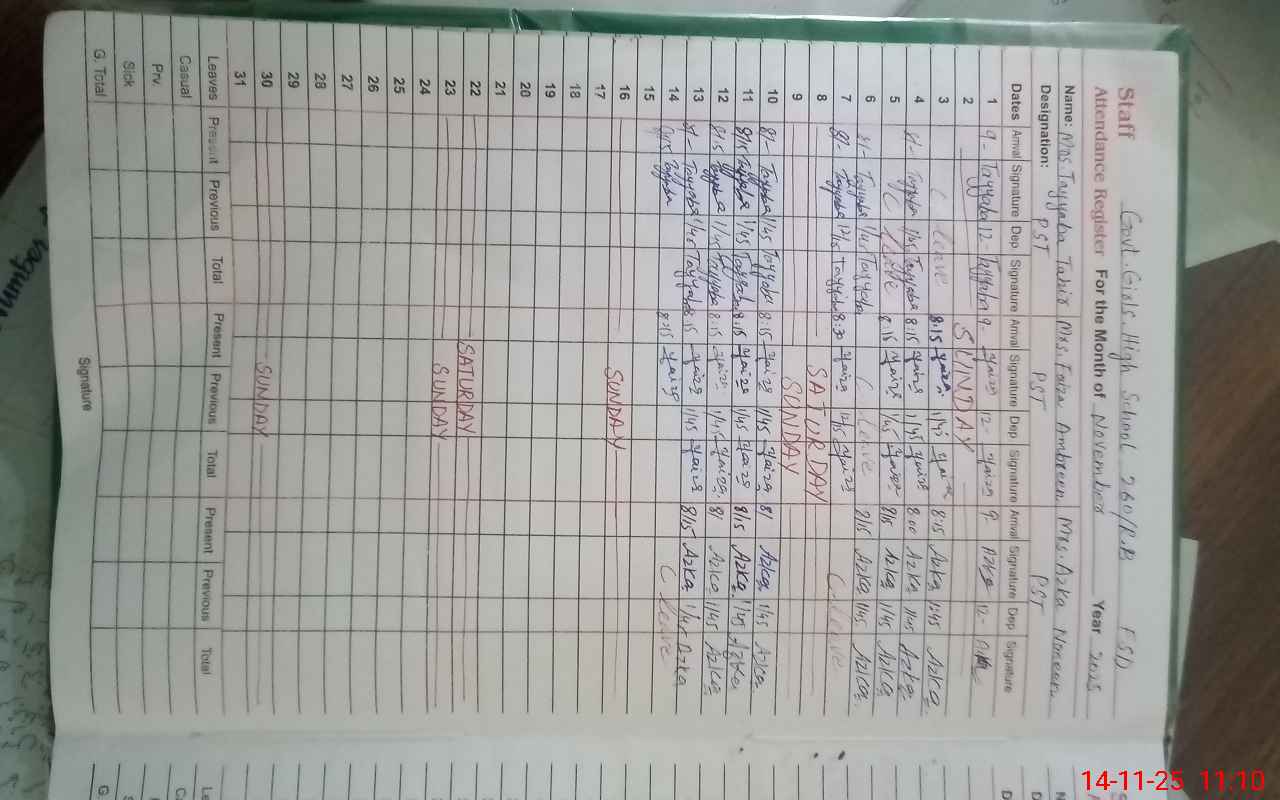 Staff Govt. Girls. High School 260/R.B FSD
Attendance Register For the Month of November Year 2025
Name: Mrs Tayyaba Tahir Mrs. Faiza Ambreen Mrs. Azka Noreen
Designation: PST PST PST
Dates Arrival Signature Dep Signature Arrival Signature Dep Signature Arrival Signature Dep Signature
1 9- Tayyaba 12- Tayyaba 9- Faiza 12- Faiza 9- Azka 12- Azka
2 SUNDAY
3 C. leave 8:15 Faiza 1/45 Faiza 8:15 Azka 1:45 Azka
4 8/- Tayyaba 1/45 Tayyaba 8:15 Faiza 1/45 Faiza 8:00 Azka 1/45 Azka
5 C leave 8:15 Faiza 1/45 Faiza 8/15 Azka 1/45 Azka
6 8/- Tayyaba 1/45 Tayyaba C leave 8/15 Azka 1/45 Azka
7 8/- Tayyaba 12/15 Tayyaba 8:30 Faiza 12/15 Faiza C leave
8 SATURDAY
9 SUNDAY
10 8/- Tayyaba 1/45 Tayyaba 8:15 Faiza 1/45 Faiza 8/ Azka 1/45 Azka
11 8/15 Tayyaba 1/45 Tayyaba 8:15 Faiza 1/45 Faiza 8/15 Azka 1/45 Azka
12 8/15 Tayyaba 1/45 Tayyaba 8:15 Faiza 1/45 Faiza 8/ Azka 1/45 Azka
13 8/- Tayyaba 1/45 Tayyaba 8:15 Faiza 1/45 Faiza 8/15 Azka 1/45 Azka
14 8/15 Tayyaba 8:15 Faiza C leave
15
16 SUNDAY
17
18
19
20
21
22 SATURDAY
23 SUNDAY
24
25
26
27
28
29
30 SUNDAY
31
Leaves Present Previous Total Present Previous Total Present Previous Total
Casual
Prv.
Sick
G. Total
Signature
14-11-25 11:10